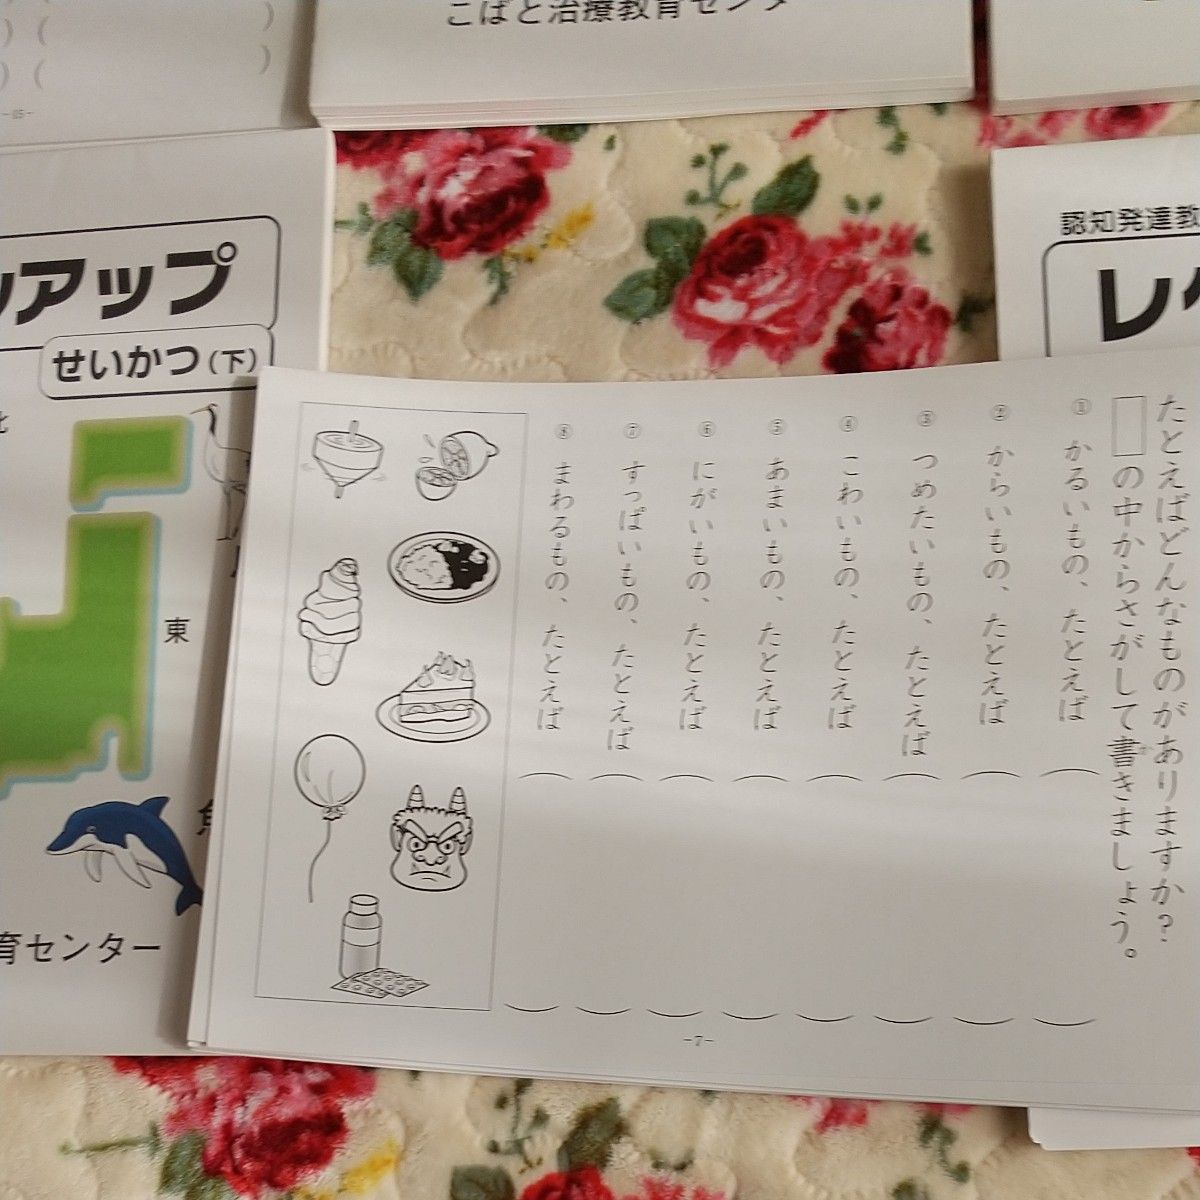 こばと治療教育センタ
アップ
せいかつ(下)
東
育センター
認知発達教
レ
たとえばどんなものがありますか？
の中からさがして書きましょう。
か
① かるいもの、たとえば（　）
② からいもの、たとえば（　）
③ つめたいもの、たとえば（　）
④ こわいもの、たとえば（　）
⑤ あまいもの、たとえば（　）
⑥ にがいもの、たとえば（　）
⑦ すっぱいもの、たとえば（　）
⑧ まわるもの、たとえば（　）
-7-